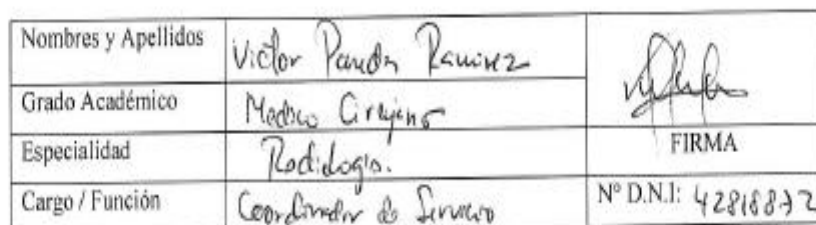 Nombres y Apellidos Victor Ramirez
Grado Académico Medico Cirujano
Especialidad Radiología.
FIRMA
Cargo / Función Coordinador de Servicio
Nº D.N.I: 42818872